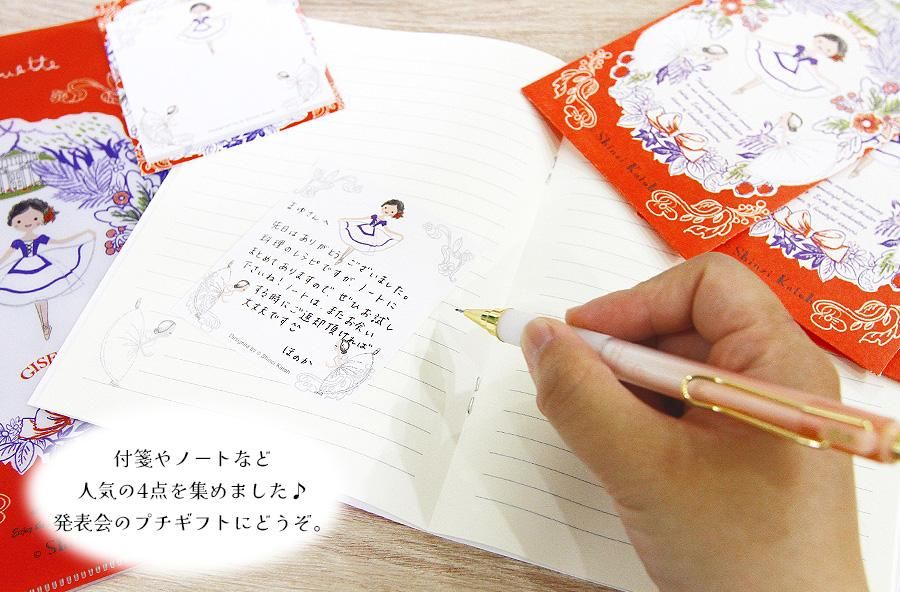 uette
まゆさんへ
先日はありがとうございました。
料理のレシピですが ノートに
まとめてありますので、ぜひお試し
下さいね！ノートは、またお会い
する時にご返却頂ければ
大丈夫です
ほのか
Designed by © Shinzi Katoh
GISE
Shinzi Katoh
Shinzi Katoh
付箋やノートなど
人気の4点を集めました♪
発表会のプチギフトにどうぞ。